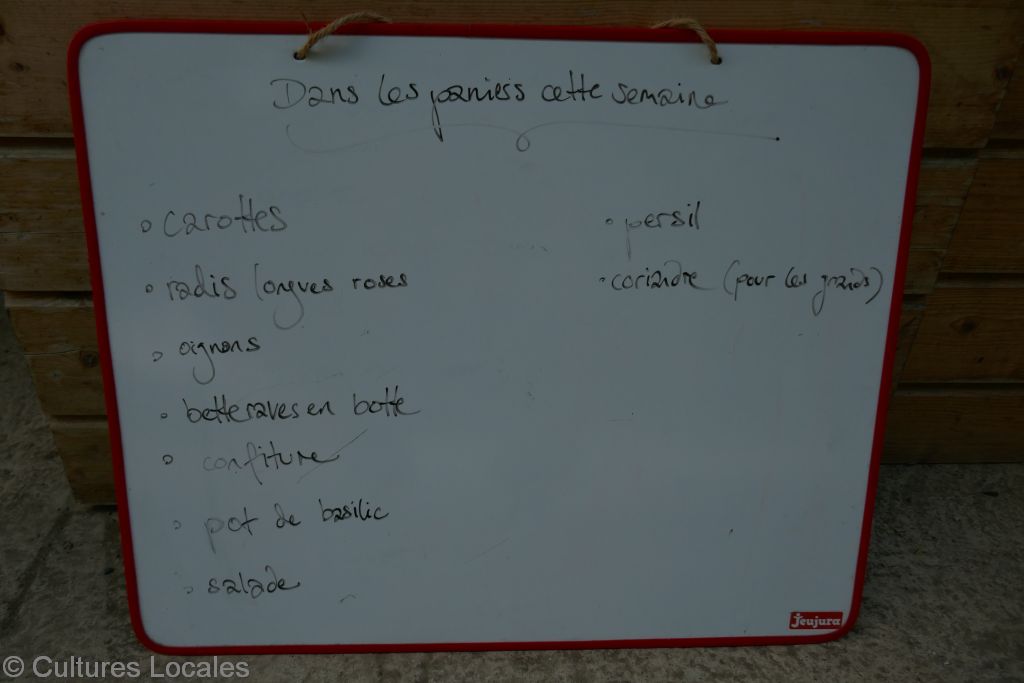 Dans les paniers cette semaine
° carottes
° radis longues roses
° oignons
° betteraves en botte
° confiture
° pot de basilic
° salade
° persil
° coriandre (pour les grands)
Jeujura
© Cultures Locales